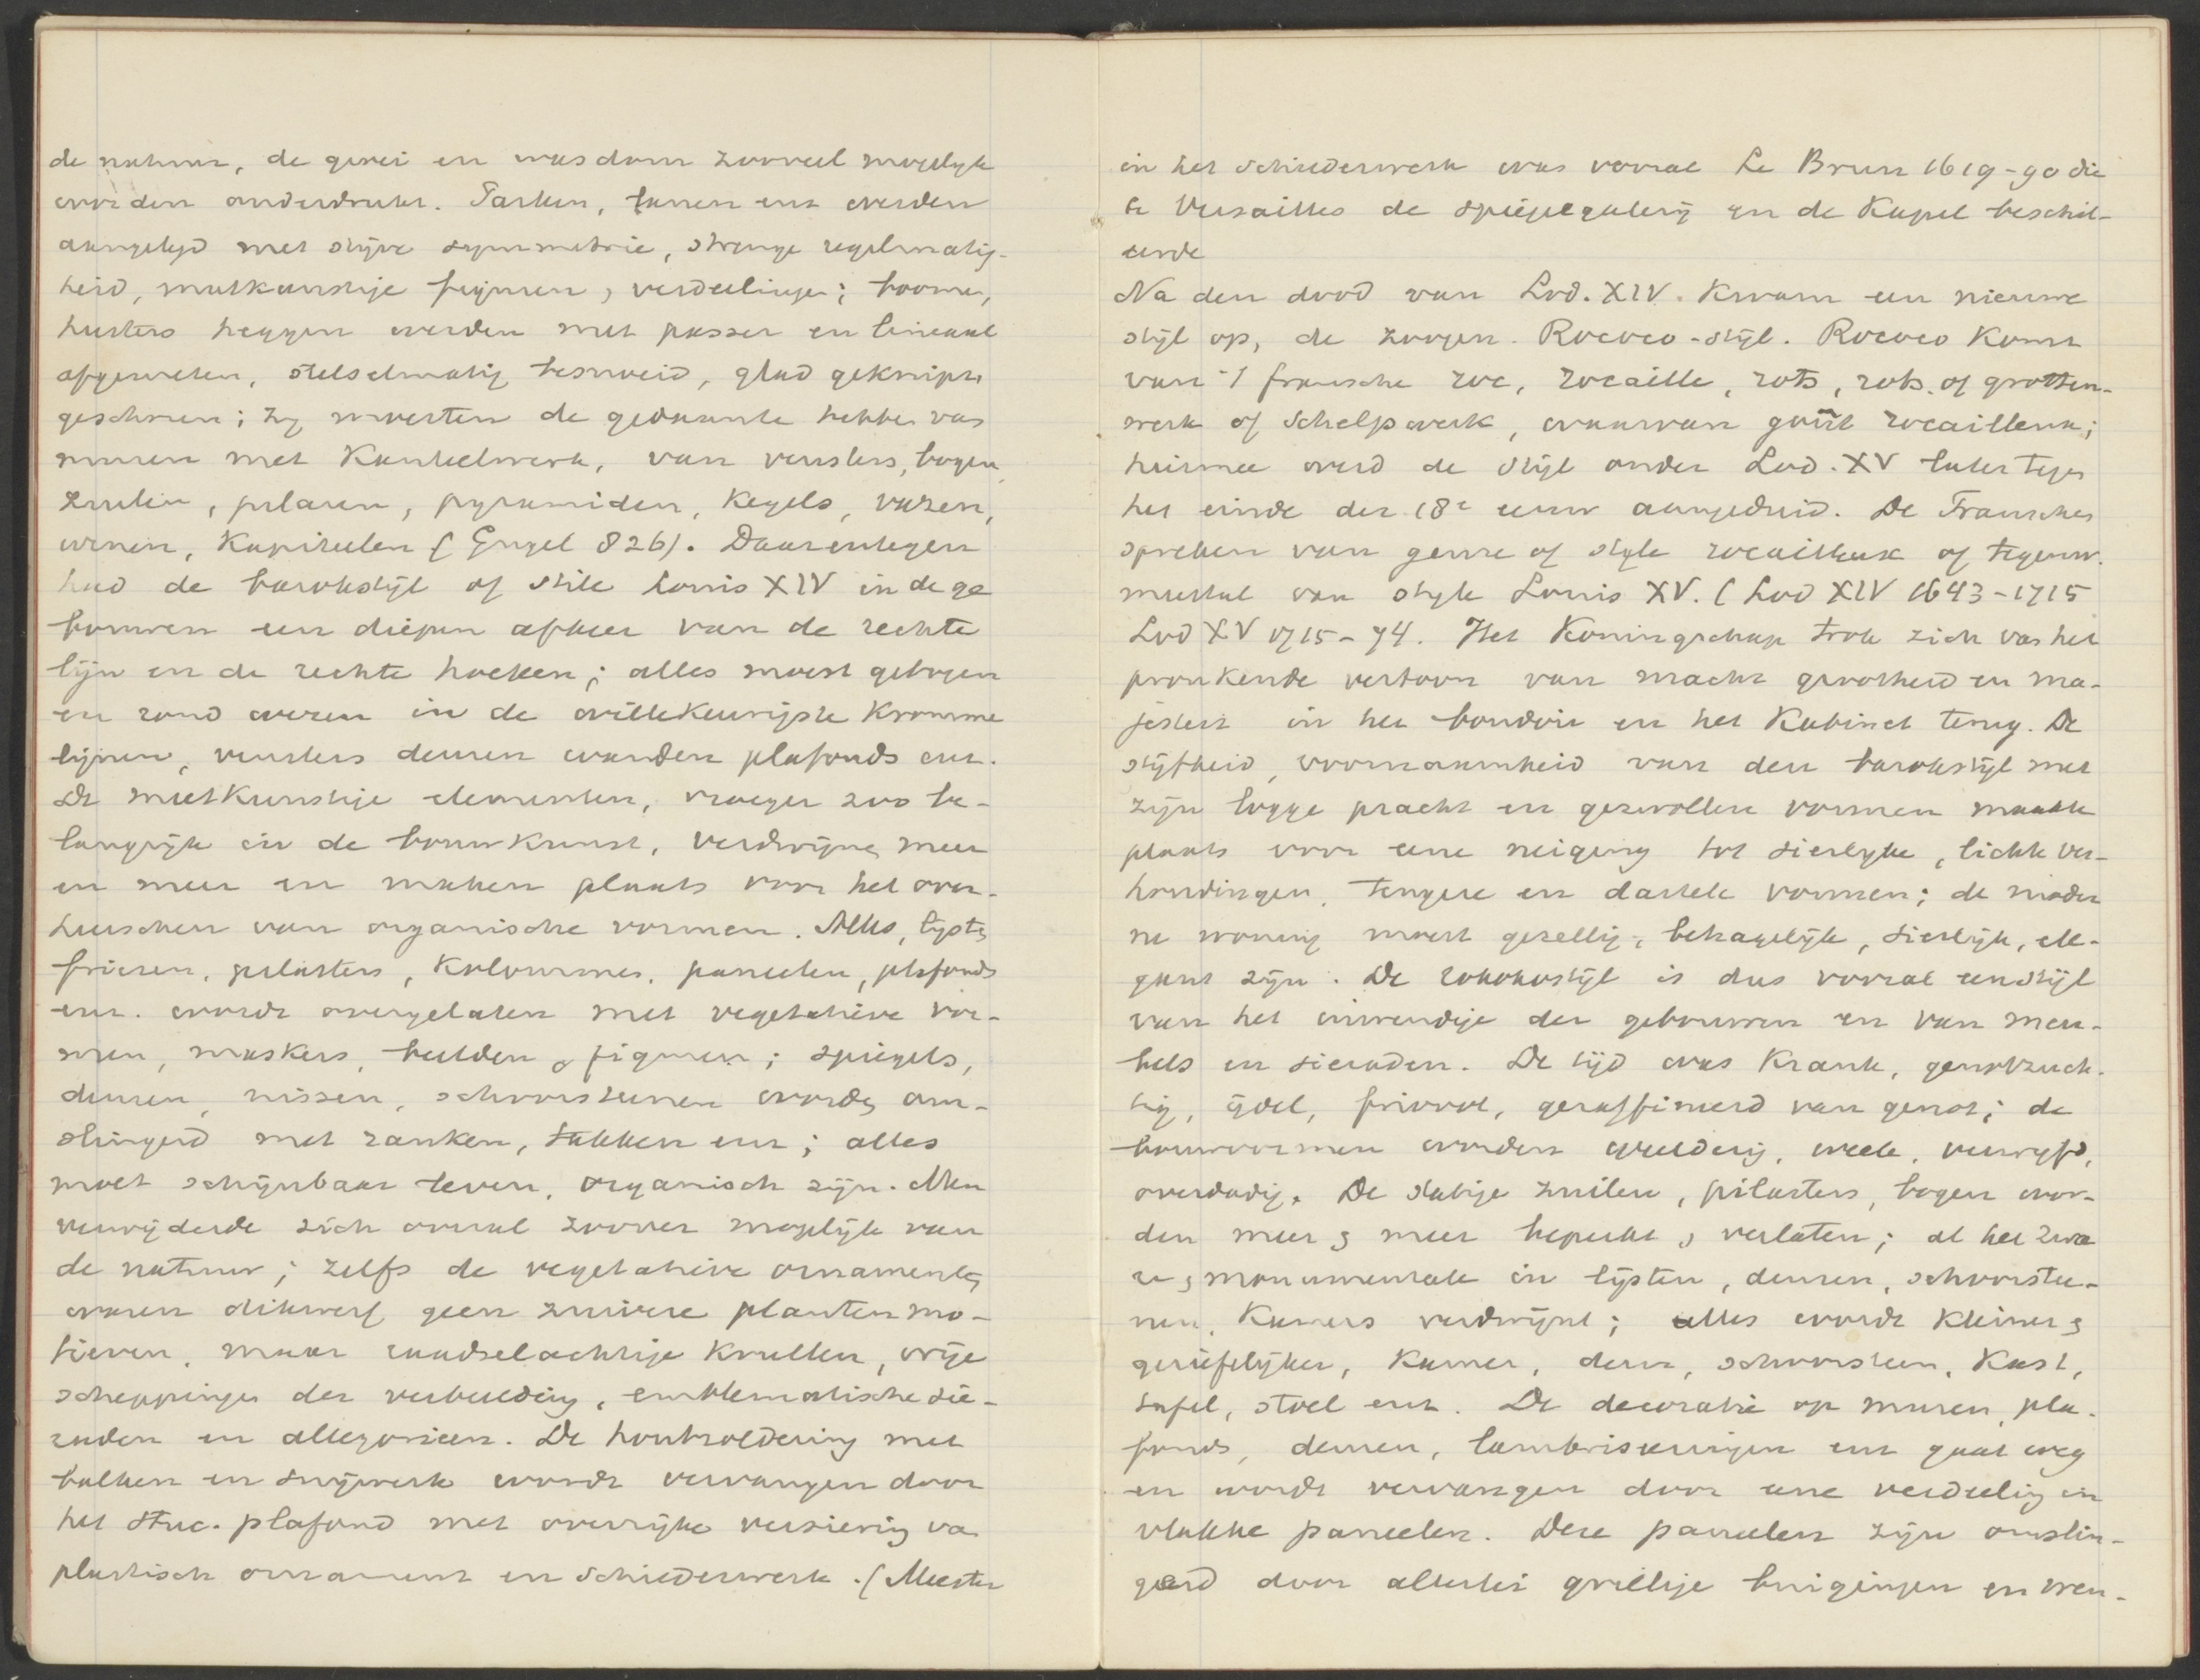 de natuur, de groei en wasdom zooveel mogelyk
worden onderdrukt. Parken, tuinen enz werden
aangelegd met stijve symmetrie, strenge regelmatig-
heid, meetkunstige figuren, verdeelingen; boomen,
heesters heggen werden met passer en lineaal
afgemeten, stelselmatig besnoeid, glad geknipt
geschoren; zy moesten de gedaante hebben van
muren met Kanteelwerk, van vensters, bogen,
zuilen, pilaren, pyramiden, Kegels, vazen,
urnen, Kapiteelen (Engel 826). Daarentegen
had de barokstijl of stile Louis XIV in de ge
bouwen een diepen afkeer van de rechte
lijn en de rechte hoeken; alles moest gebogen
en rond wezen in de willekeurigste Kromme
lijnen, vensters deuren wanden plafonds enz.
De meetkunstige elementen, vroeger zoo be-
langrijk in de bouwkunst, verdwijnen meer
en meer en maken plaats voor het over-
heerschen van organische vormen. Alles, lysten
friezen, pilasters, Kolommen, paneelen, plafonds
enz. wordt overgelaten met vegetatieve vor-
men, maskers, beelden, figuren; spiegels,
deuren, nissen, schoorsteenen worden om-
slingerd met ranken, takken enz; alles
moet schijnbaar leven, organisch zijn. Men
verwijderde zich overal zoover mogelijk van
de natuur; zelfs de vegetatieve ornamenten
waren dikwerf geen zuivere planten mo-
tieven, maar raadselachtige Krullen, vrije
scheppingen der verbeelding, emblematische sie-
raden en allegorieen. De houtzoldering met
balken en snijwerk wordt vervangen door
het stuc-plafond met overrijke versiering van
plastisch ornament en schilderwerk. (Meester
in het schilderwerk was vooral Le Brun 1619-90 die
te Versailles de spiegelgalerij en de Kapel beschil-
derde
Na den dood van Lod. XIV. Kwam een nieuwe
stijl op, de zoogen. Rococo-stijl. Rococo Komt
van 't fransche roc, rocaille, rots, rots of grotten-
werk of schelpwerk, waarvan goût rocailleux;
hiermee werd de stijl onder Lod. XV later tegen
het einde der 18e eeuw aangeduid. De Franschen
spreken van genre of style rocailleux of tegenw.
meestal van style Louis XV. (Lod XIV 1643-1715
Lod XV 1715-74. Het Koningschap trok zich van het
pronkende vertoon van macht grootheid en ma-
jesteit in het boudoir en het Kabinet terug. De
stijfheid, voornaamheid van den barokstijl met
zijn logge pracht en gezwollen vormen maakte
plaats voor eene neiging tot sierlyke, lichte ver-
houdingen, tengere en dartele vormen; de moder
ne woning moest gezellig, behagelijk, sierlijk, ele-
gant zijn. De rokokostijl is dus vooral een stijl
van het inwendige der gebouwen en van meu-
bels en sieraden. De tijd was Krank, genotzuch-
tig, ijdel, frivool, geraffineerd van genot; de
bouwvormen worden weelderig, week, verwyfd,
overdadig. De statige zuilen, pilasters, bogen wor-
den meer en meer beperkt, verlaten; al het zwa
re, monumentale in lijsten, deuren, schoorstee-
nen, Kamers verdwijnt; alles wordt Kleiner en
geriefelijker, Kamer, deur, schoorsteen, Kast,
tafel, stoel enz. De decoratie op muren, pla-
fonds, deuren, lambriseeringen enz gaat weg
en wordt vervangen door eene verdeeling in
vlakke paneelen. Deze paneelen zijn omslin-
gerd door allerlei grillige buigingen en wen-